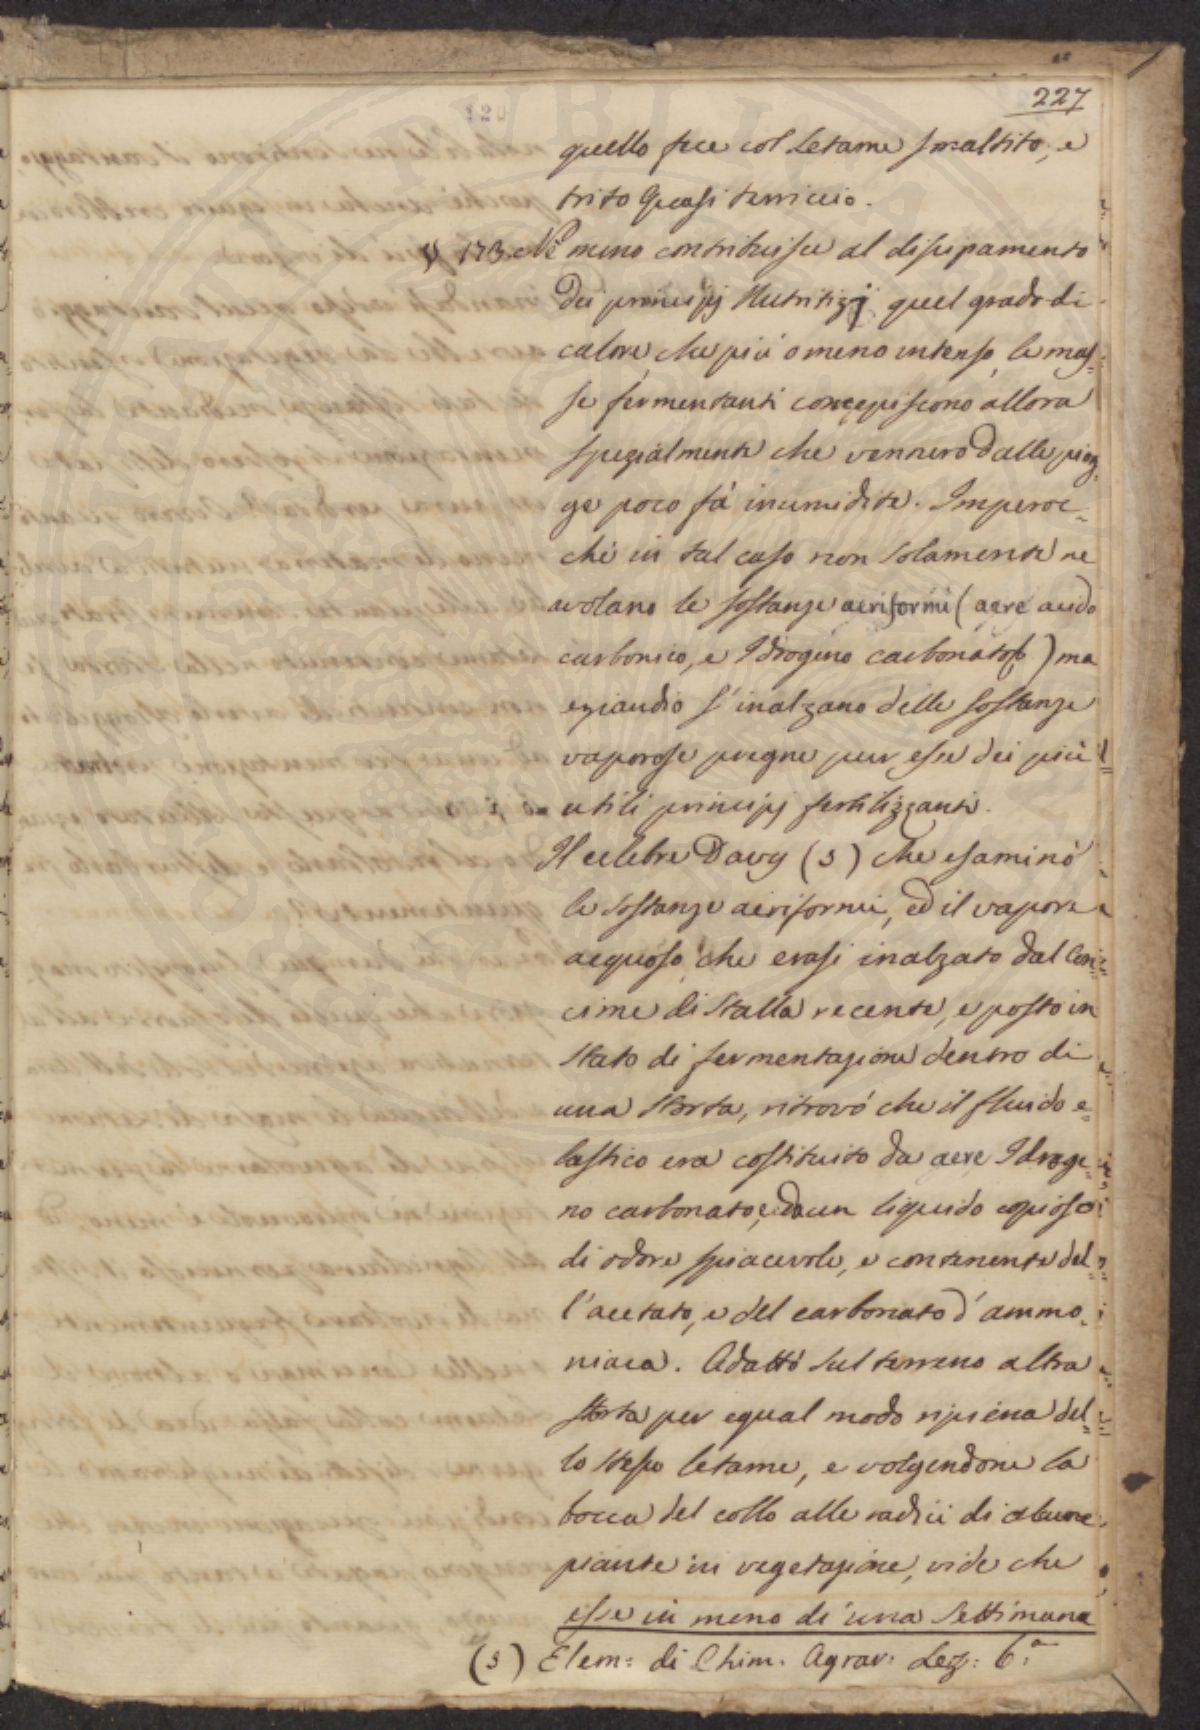 120
227
quello fece col Letame smaltito, e
trito quasi terriccio.
§ 173 Nè meno contribuisce al dissipamento
dei principj Nutritizj quel grado di
calore, che più o meno intenso, le mas-
se fermentanti concepiscono allora
spezialmente che vennero dalle piog-
ge poco fà inumidite. Imperoc-
chè in tal caso non solamente ne
avolano le sostanze aeriformi (aere acido
carbonico, e Idrogeno carbonato) ma
eziandio s'inalzano delle sostanze
vaporose pregne pur esse dei più
utili principj fertilizzanti.
Il celebre Davy (s) che esaminò
le sostanze aeriformi, ed il vapore
acquoso che erasi inalzato dal Con-
cime di Stalla recente, e posto in
Stato di fermentazione dentro di
una Storta, ritrovò che il fluido e-
lastico era costituito da aere Idroge-
no carbonato, e da un liquido copioso
di odore spiacevole, e contenente del-
l'acetato, e del carbonato d'ammo-
niaca. Adattò sul terreno altra
storta per egual modo ripiena del-
lo stesso letame, e volgendone la
bocca del collo alle radici di alcune
piante in vegetazione, vide che
esse in meno di una Settimana
(s) Elem: di Chim. Agrar: Lez: 6.a